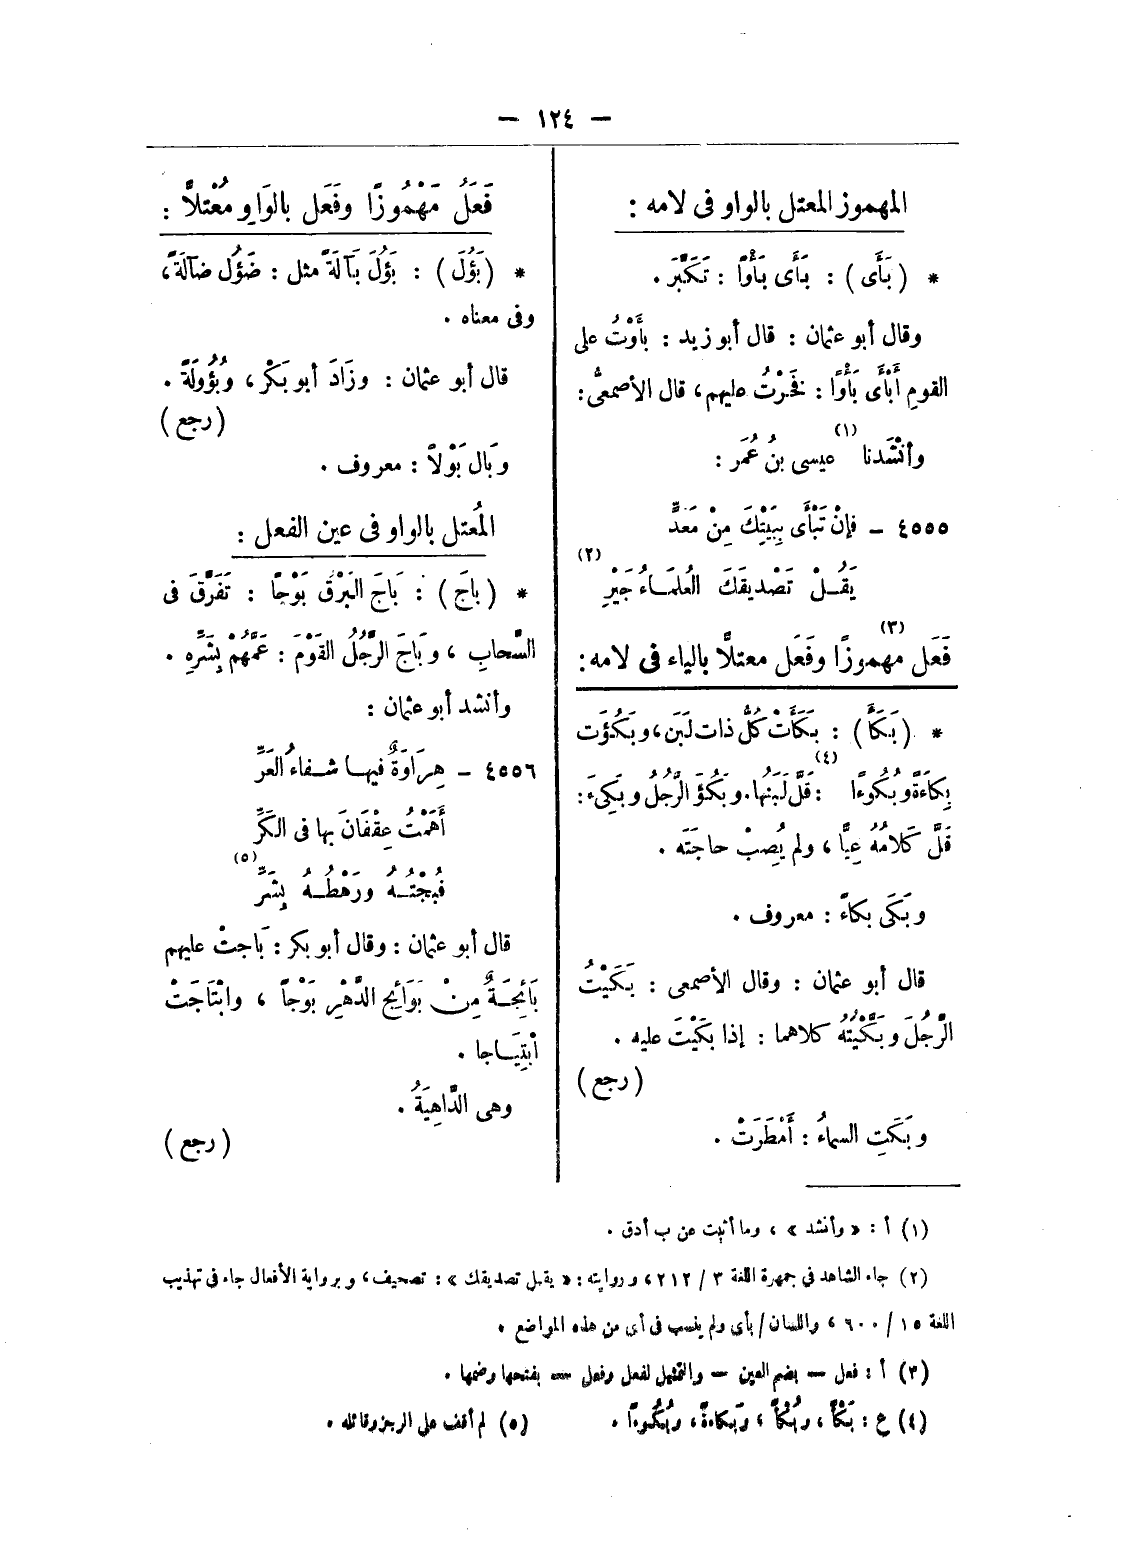 — ١٢٤ —
المهموز المعتل بالواو فى لامه :
* ( بَأَى ) : بَأَى بَأْوًا : تَكَبَّرَ .
وقال أبو عثمان : قال أبو زيد : بأَوْتُ على
القومِ أَبْأَى بَأْوًا : فَخَرْتُ عليهم، قال الأصمعىُّ :
وأنْشَدنا (١) عيسى بنُ عُمَر :
٤٥٥٥ – فإنْ تَبْأَى بِبَيْتِكَ مِنْ مَعَدٍّ
يَقُـلْ تَصْديقَكَ العُلمَـاءُ جَيْرِ (٢)
فَعَل مهموزًا وفَعَل معتلًّا بالياء فى لامه : (٣)
* ( بَكَأَ ) : بَكَأَتْ كُلُّ ذات لَبَن، وبَكُؤَت
بِكاءَةً وبُكُوءًا (٤) : قَلَّ لَبَنُها. وبَكُؤَ الرَّجُلُ وبَكِىءَ :
قَلَّ كَلامُهُ عِيًّا ، ولم يُصِبْ حاجَتَه .
وبَكَى بكاءً : معروف .
قال أبو عثمان : وقال الأصمعى : بَكَيْتُ
الرَّجُلَ وبَكَّيْتُهُ كلاهما : إذا بَكَيْتَ عليه .
( رجع )
وبَكَتِ السماءُ : أَمْطَرَتْ .
فَعَلُ مَهْمُوزًا وفَعَل بالوَاوِ مُعْتلاًّ :
* ( بَؤُلَ ) : بَؤُلَ بَآلَةً مثل : ضَؤُل ضآلةً،
وفى معناه .
قال أبو عثمان : وزَادَ أبو بَكْر، وبُؤُولَةً .
( رجع )
وبَال بَوْلاً : معروف .
المُعتل بالواو فى عين الفعل :
* ( باجَ ) : بَاجَ البَرْقُ بَوْجًا : تَفَرَّقَ فى
السَّحابِ ، وبَاجَ الرَّجُلُ القَوْمَ : عَمَّهُمْ بِشَرِّهِ .
وأنشد أبو عثمان :
٤٥٥٦ – هِرَاوَةٌ فيهـا شـفاءُ العَرِّ
أَهَمْتُ عِقْفَانَ بها فى الكَرِّ
فَبُجْتُـهُ ورَهْطُـهُ بِشَرِّ (٥)
قال أبو عثمان : وقال أبو بكر : بَاجتْ عليهم
بَائِجَـةٌ مِنْ بَوَائِج الدَّهْرِ بَوْجاً ، وابْتَاجَتْ
ابْتِيَـاجا .
وهى الدَّاهِيَةُ .
( رجع )
(١) أ : « وأنشد » ، وما أثبت عن ب أدق .
(٢) جاء الشاهد فى جمهرة اللغة ٣ / ٢١٢، وروايته : « يقبل تصديقك » : تصحيف، وبرواية الأفعال جاء فى تهذيب
اللغة ١٥ / ٦٠٠ ، واللسان / بأى ولم ينسب فى أى من هذه المواضع .
(٣) أ : فعل — بضم العين — والتمثيل لفعل وفعل — بفتحها وضمها .
(٤) ع : بَكْأً ، وبُكْأً ، وبَكاءةً، وبُكُوءًا .
(٥) لم أقف على الرجز وقائله .